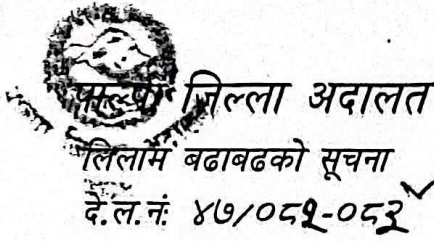 पाल्पा जिल्ला अदालत
लिलाम बढाबढको सूचना
दे.ल.नं: ४७/०८२-०८३